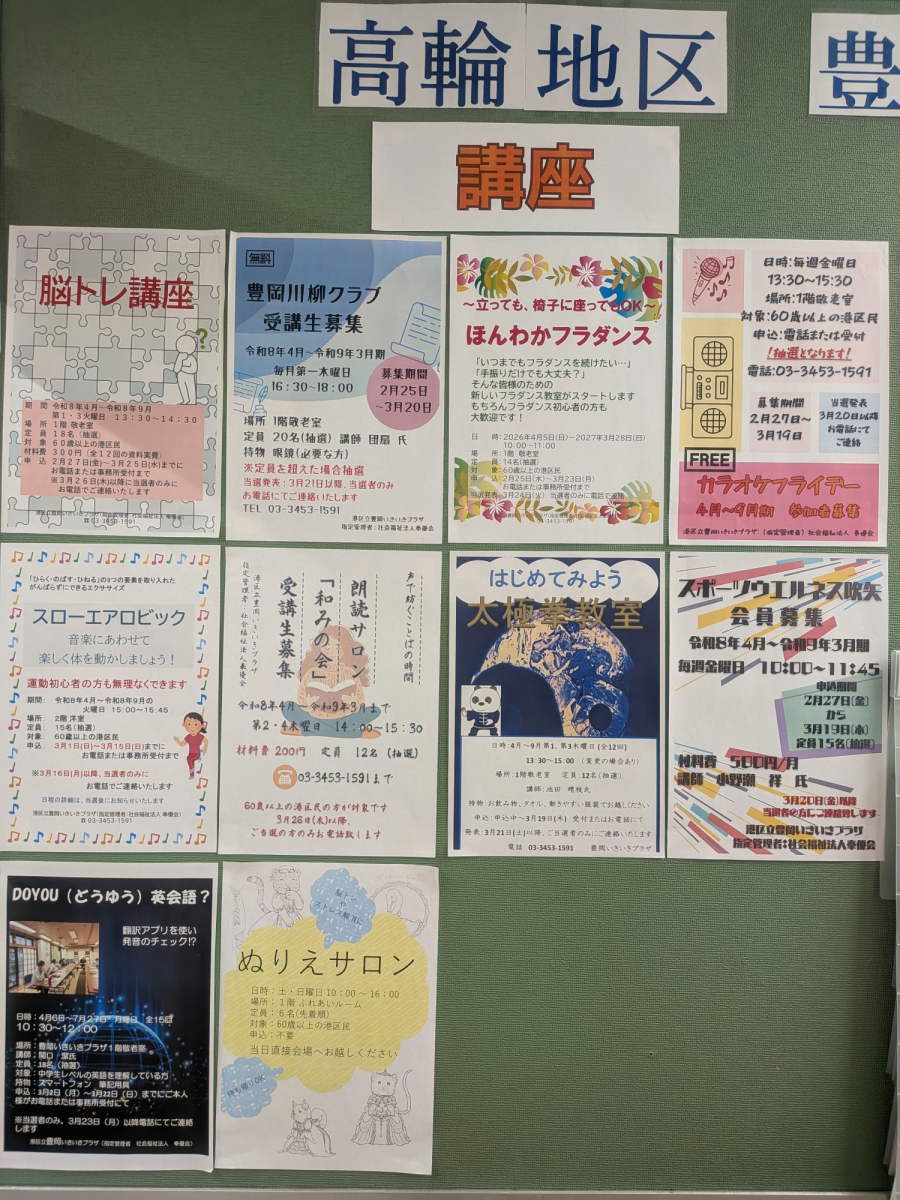 高輪地区
豊
講座
脳トレ講座
期 間 令和8年4月～令和8年9月
第1・3火曜日 13:30～14:30
場 所 1階 敬老室
定 員 18名（抽選）
対 象 60歳以上の港区民
材料費 300円（全12回の資料実費）
申 込 2月27日(金)～3月25日(水)までに
お電話または事務所受付まで
※3月26日(木)以降に当選者のみに
お電話でご連絡いたします
港区立豊岡いきいきプラザ(指定管理者：社会福祉法人奉優会)
☎ 03-3453-1591
無料
豊岡川柳クラブ
受講生募集
令和8年4月～令和9年3月期
毎月第一木曜日
16:30～18:00
募集期間
2月25日
～3月20日
場所 1階敬老室
定員 20名(抽選) 講師 団扇 氏
持物 眼鏡(必要な方)
※定員を超えた場合抽選
当選発表：3月21日以降、当選者のみ
お電話にてご連絡いたします
TEL 03-3453-1591
港区立豊岡いきいきプラザ
指定管理者：社会福祉法人奉優会
～立っても、椅子に座ってもOK～
ほんわかフラダンス
「いつまでもフラダンスを続けたい…」
「手振りだけでも大丈夫？」
そんな皆様のための
新しいフラダンス教室がスタートします
もちろんフラダンス初心者の方も
大歓迎です！
日 時：2026年4月5日(日)～2027年3月28日(日)
10:00～11:00
場 所：1階 敬老室
定 員：14名(抽選)
対 象：60歳以上の港区民
申 込：2月25日(水)～3月23日(月)
お電話または事務所受付まで
当選発表：3月24日(火) 当選者のみに電話で連絡
03-3453-1591
日時:毎週金曜日
13:30～15:30
場所:1階敬老室
対象:60歳以上の港区民
申込:電話または受付
!抽選となります!
電話:03-3453-1591
募集期間
2月27日～
3月19日
当選発表
3月20日以降
お電話にて
ご連絡
FREE
カラオケフライデー
4月～9月期 参加者募集
港区立豊岡いきいきプラザ：(指定管理者)社会福祉法人 奉優会
「ひらく・のばす・ひねる」の3つの要素を取り入れた
がんばらずにできるエクササイズ
スローエアロビック
音楽にあわせて
楽しく体を動かしましょう！
運動初心者の方も無理なくできます
期間： 令和8年4月～令和8年9月の
火曜日 15:00～15:45
場所： 2階 洋室
定員： 15名(抽選)
対象： 60歳以上の港区民
申込： 3月1日(日)～3月15日(日)までに
お電話または事務所受付まで
※3月16日(月)以降、当選者のみに
お電話でご連絡いたします
日程の詳細は、当選後にお知らせいたします
港区立豊岡いきいきプラザ(指定管理者:社会福祉法人奉優会)
☎ 03-3453-1591
声で紡ぐことばの時間
朗読サロン
「和みの会」
受講生募集
港区立豊岡いきいきプラザ
指定管理者 社会福祉法人奉優会
令和8年4月～令和9年3月まで
第2・4木曜日 14:00～15:30
材料費 200円 定員 12名（抽選）
03-3453-1591まで
60歳以上の港区民の方が対象です
3月26日(木)以降、
ご当選の方のみお電話致します
はじめてみよう
太極拳教室
日時:4月～9月第1、第3木曜日(全12回)
13:30～15:00 (変更の場合あり)
場所:1階敬老室 定員:12名(抽選)
講師:池田 晴枝氏
持物:お飲み物、タオル、動きやすい服装でお越しください
申込:申込中～3月19日(木) 受付またはお電話にて
発表:3月21日(土)以降、ご当選者のみにご連絡いたします
電話 03-3453-1591 豊岡いきいきプラザ
スポーツウエルネス吹矢
会員募集
令和8年4月～令和9年3月期
毎週金曜日 10:00～11:45
申込期間
2月27日(金)
から
3月19日(木)
定員15名(抽選)
材料費 500円/月
講師 小野瀬 祥 氏
3月20日(金)以降
当選者の方にご連絡致します
港区立豊岡いきいきプラザ
指定管理者:社会福祉法人奉優会
DOYOU（どうゆう）英会話？
翻訳アプリを使い
発音のチェック!?
日時：4月6日～7月27日* 月曜日 全15回
10:30～12:00
場所：豊岡いきいきプラザ1階敬老室
講師：関口 潔氏
定員：18名（抽選）
対象：中学生レベルの英語を理解している方
持物：スマートフォン 筆記用具
申込：3月2日（月）～3月22日（日）までにご本人
様がお電話または事務所受付にて
※当選者のみ、3月23日（月）以降電話にてご連絡
します
港区立豊岡いきいきプラザ（指定管理者 社会福祉法人 奉優会）
脳トレ
や
ストレス解消に
ぬりえサロン
日時：土・日曜日10:00～16:00
場所：1階 ふれあいルーム
定員：6名(先着順)
対象：60歳以上の港区民
申込：不要
当日直接会場へお越しください
持ち帰りOK